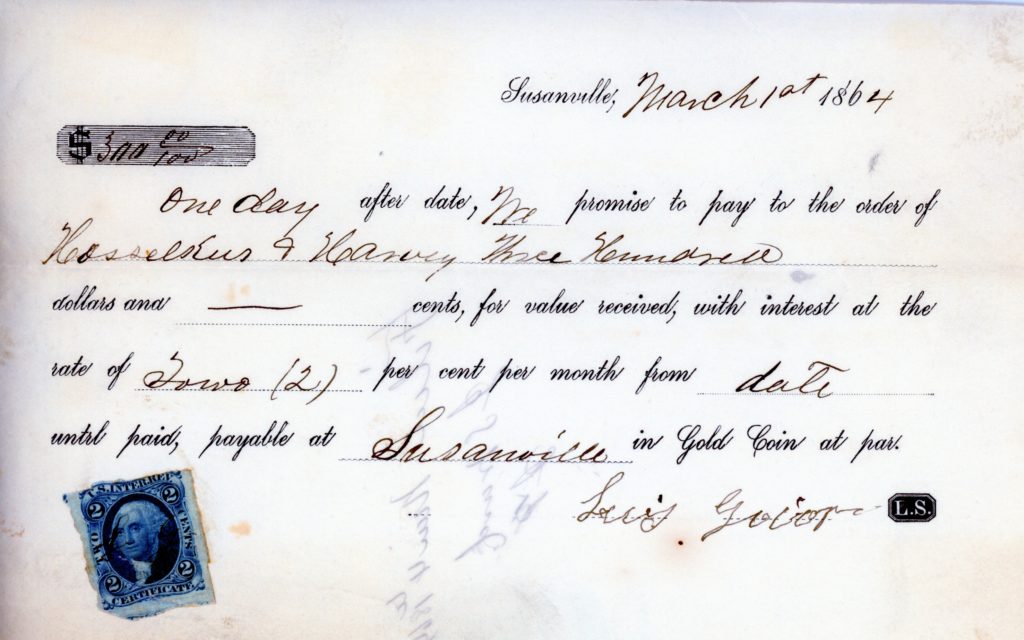 Susanville, March 1st 1864
$ 300 00/100
One day after date, We promise to pay to the order of
Hosselkus & Harvey Three Hundred
dollars and — cents, for value received, with interest at the
rate of Towo (2) per cent per month from date
until paid, payable at Susanville in Gold Coin at par.
L.S.
U.S. INTER. REV.
2 2
TWO CENTS
2 2
CERTIFICATE